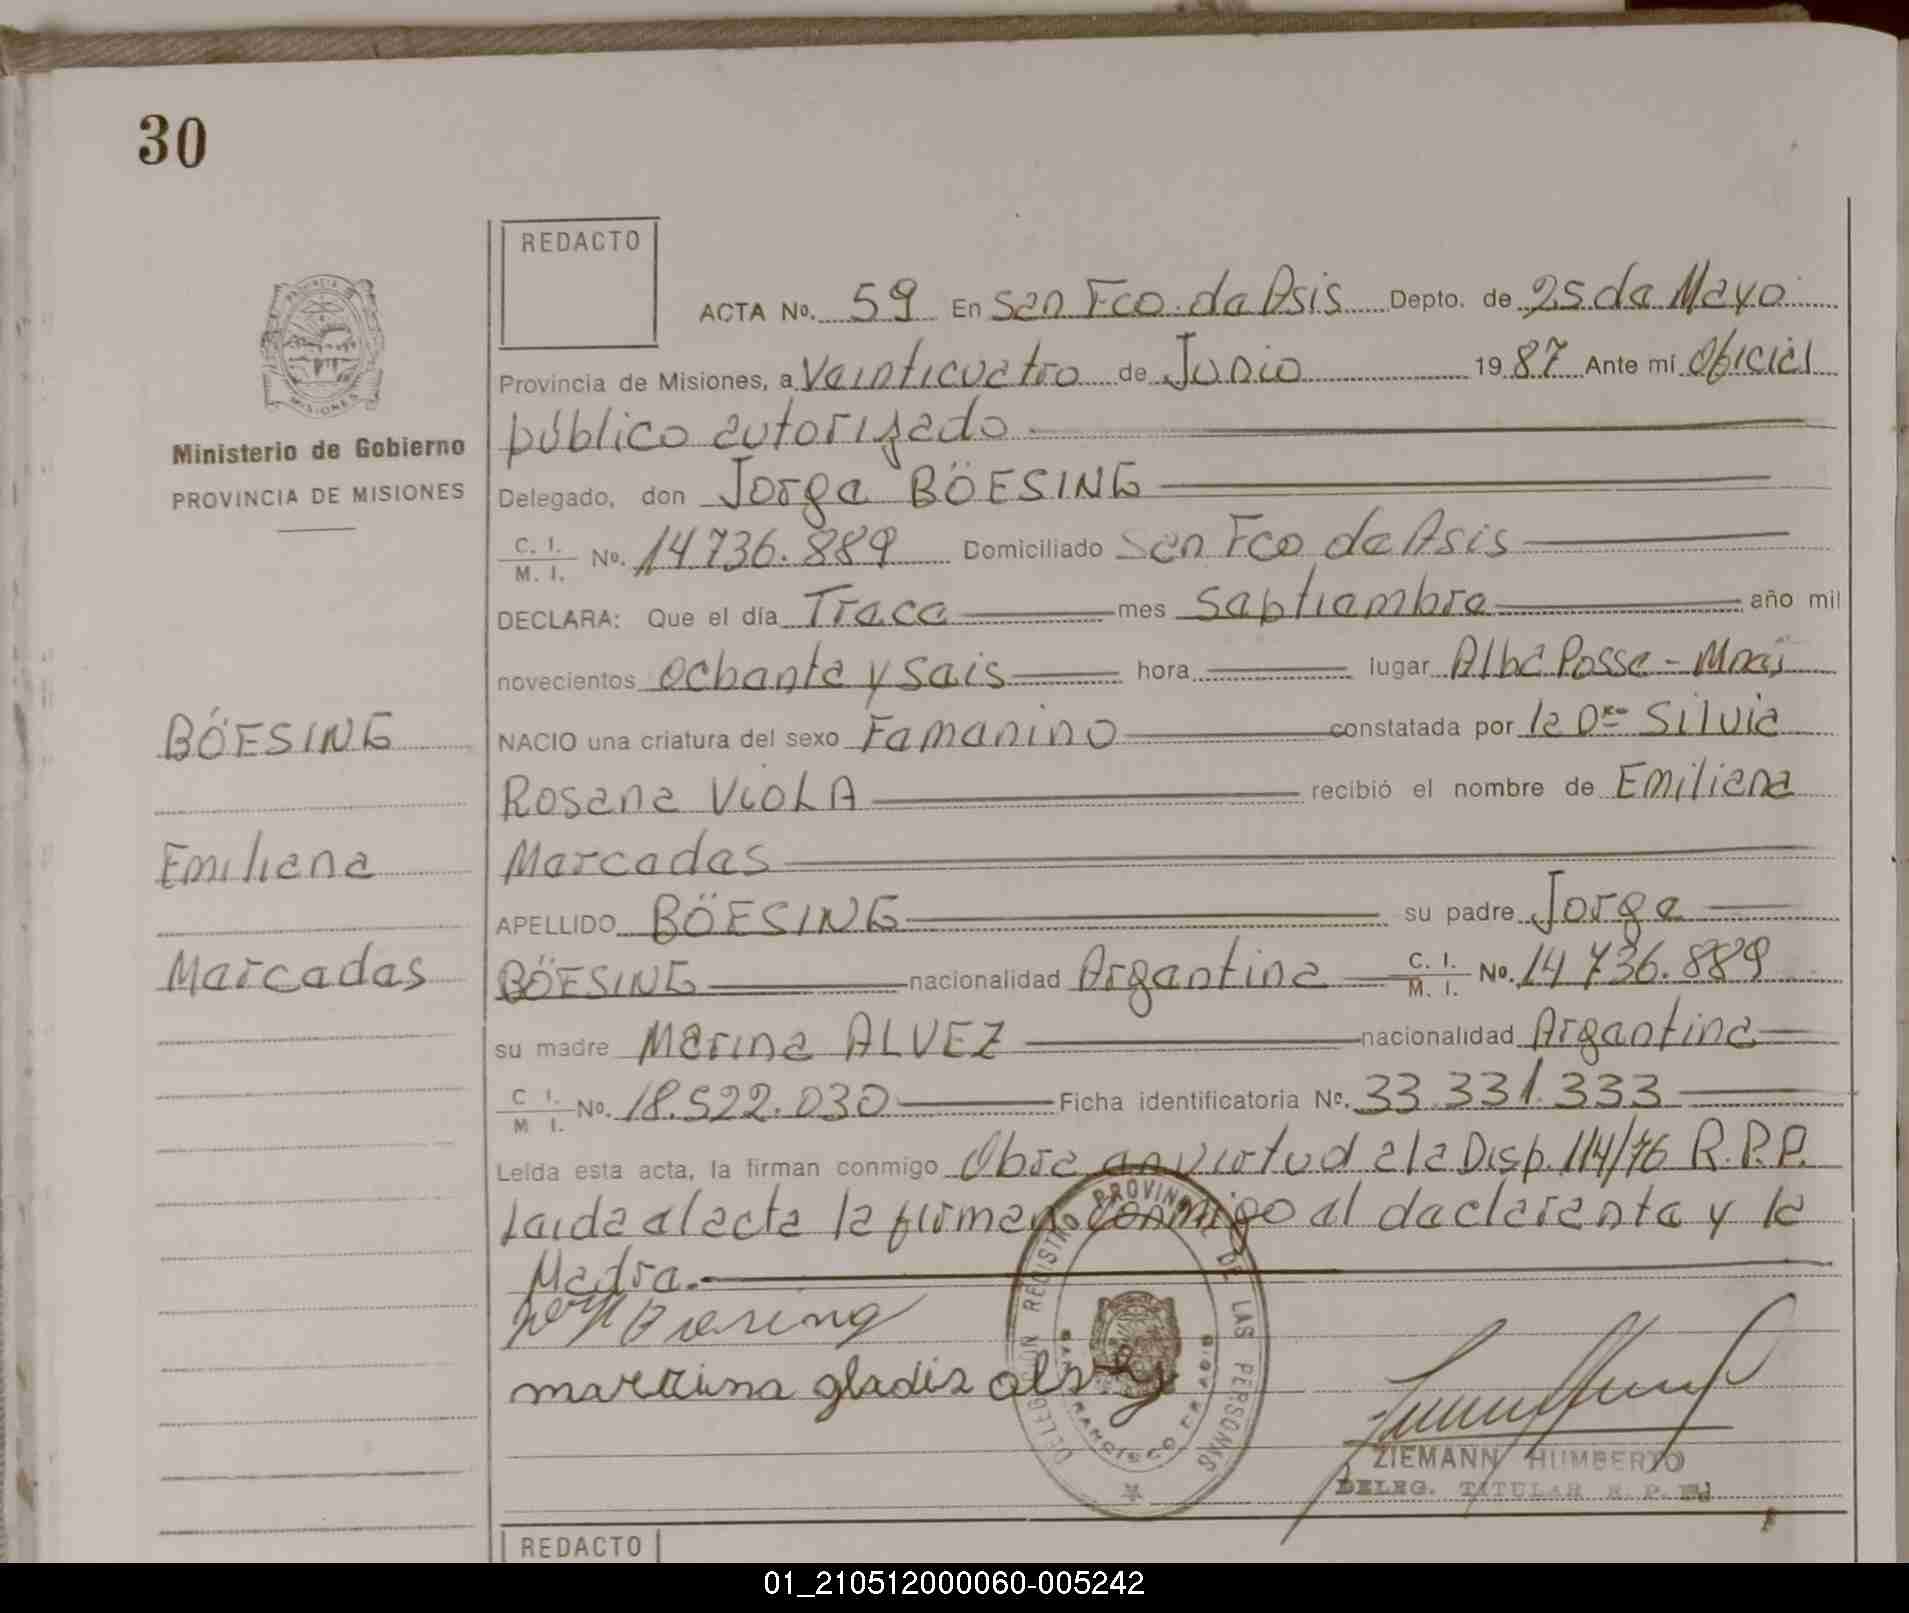 30
REDACTO
ACTA Nº. 59 En San Fco. de Asis Depto. de 25 de Mayo
Provincia de Misiones, a Veinticuatro de Junio 19 87 Ante mí Oficial
público autorizado
Delegado, don Jorge BÖESING
C. I. / M. I. Nº. 14.736.889 Domiciliado San Fco de Asis
DECLARA: Que el día Trece mes Septiembre año mil
novecientos ochenta y seis hora lugar Alba Posse - Mnes
NACIO una criatura del sexo Femenino constatada por la Dra Silvia
Rosana VIOLA recibió el nombre de Emiliana
Mercedes
APELLIDO BÖESING su padre Jorge
BÖESING nacionalidad Argentina C. I. / M. I. Nº. 14.736.889
su madre Marina ALVEZ nacionalidad Argentina
C I. / M I. Nº. 18.522.030 Ficha identificatoria Nº. 33.331.333
Leída esta acta, la firman conmigo Obra en virtud a la Disp. 114/76 R.P.P.
Leida el acta la firman conmigo el declarante y la
Madre.
Boesing
gladis
ZIEMANN HUMBERTO
DELEG. TITULAR R. P. P.
PROVINCIA DE
MISIONES
Ministerio de Gobierno
PROVINCIA DE MISIONES
BÖESING
Emiliana
Mercedes
DELEGACION REGISTRO PROVINCIAL DE LAS PERSONAS
SAN FRANCISCO DE ASIS
REDACTO
01_210512000060-005242